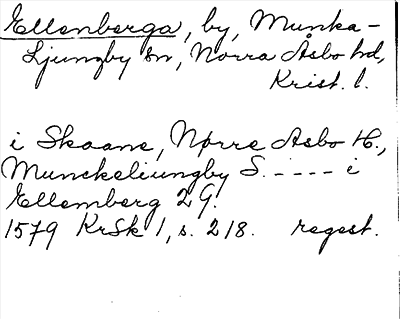 Ellenberga, by, Munka-
Ljungby sn, Norra Åsbo hd,
Krist. l.
i Skaane, Nørre Asbo H.,
Munckeliungby S. - - - - - i
Ellemberg 2 G.
1579 KrSk 1, s. 218. regest.